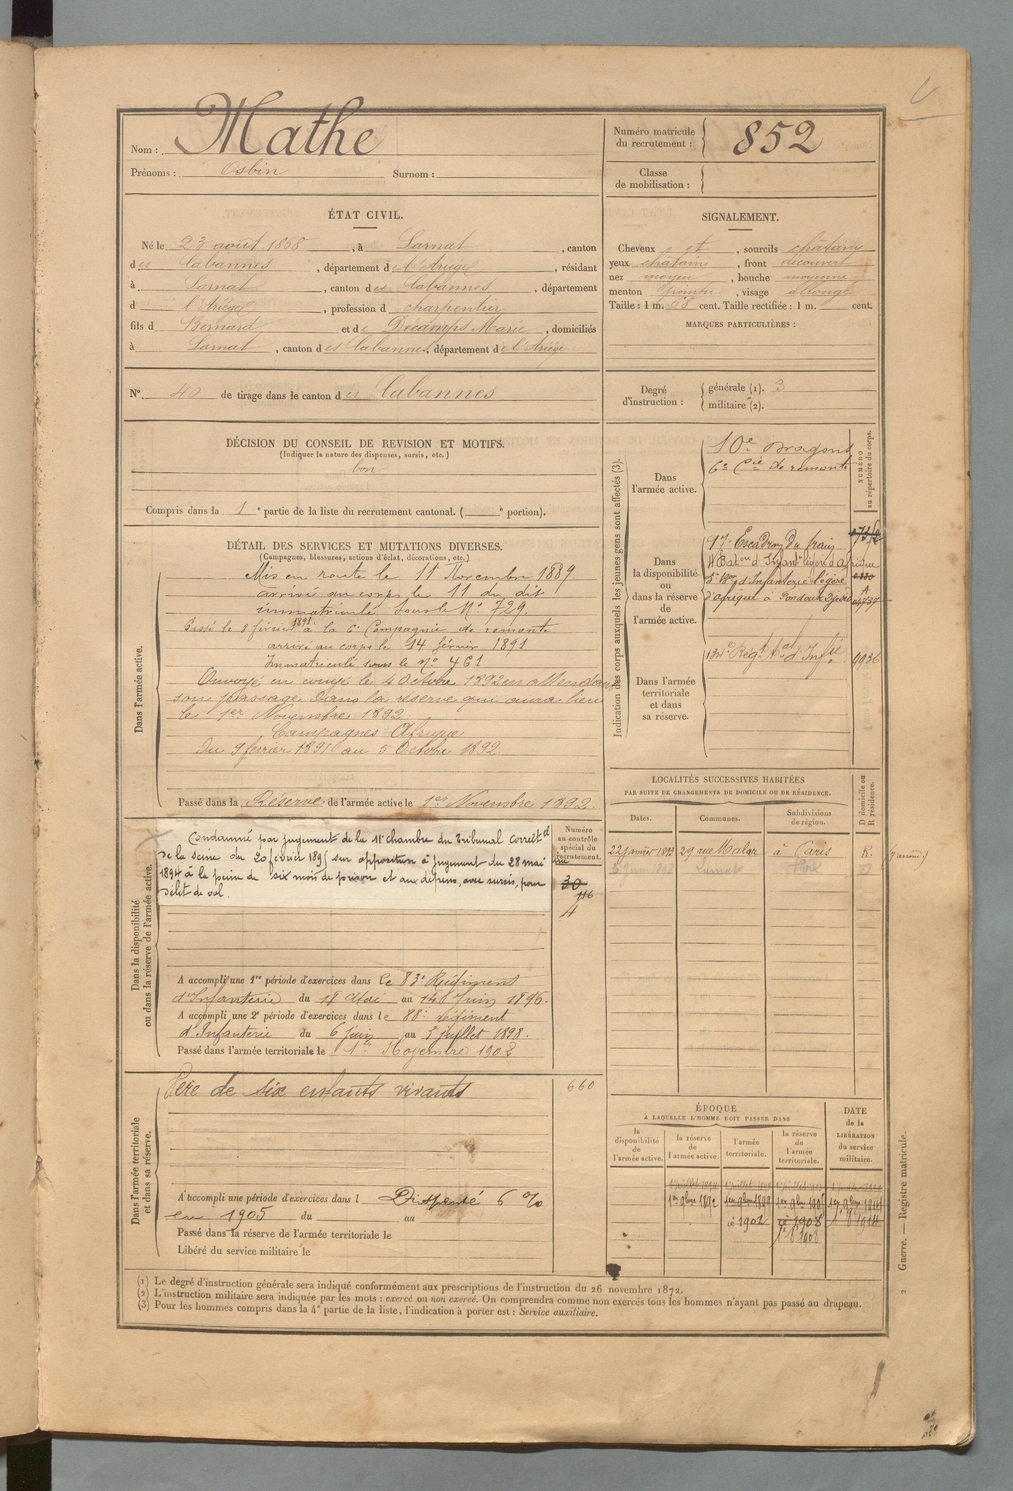 Nom : Mathe
Prénoms : Osbin Surnom :
Numéro matricule du recrutement : 852
Classe de mobilisation :
ÉTAT CIVIL.
Né le 23 août 1868, à Larnat, canton
des Cabannes, département de l'Ariège, résidant
à Larnat, canton des Cabannes, département
d l'Ariège, profession d charpentier
fils d Bernard et de Décamps Marie, domiciliés
à Larnat, canton des Cabannes, département de l'Ariège
SIGNALEMENT.
Cheveux et, sourcils châtains
yeux châtains, front découvert
nez moyen, bouche moyenne
menton pointu, visage allongé
Taille : 1 m. cent. Taille rectifiée : 1 m. cent.
MARQUES PARTICULIÈRES :
N° 40 de tirage dans le canton des Cabannes
Degré d'instruction : générale (1). 3
militaire (2).
DÉCISION DU CONSEIL DE REVISION ET MOTIFS.
(Indiquer la nature des dispenses, sursis, etc.)
bon
Compris dans la 1e partie de la liste du recrutement cantonal. ( e portion).
DÉTAIL DES SERVICES ET MUTATIONS DIVERSES.
(Campagnes, blessures, actions d'éclat, décorations, etc.)
Dans l'armée active.
Mis en route le 11 Novembre 1889
arrivé au corps le 11 du dit
immatriculé sous le N° 729
Passé le 8 février 1891 à la 6e Compagnie de remonte
arrivé au corps le 14 février 1891
Immatriculé sous le N° 461
Envoyé en congé le 4 Octobre 1892 en attendant
son passage dans la réserve qui aura lieu
le 1er Novembre 1892
Campagnes Afrique
Du 9 février 1891 au 5 Octobre 1892.
Passé dans la Réserve de l'armée active le 1er Novembre 1892
Dans la disponibilité ou dans la réserve de l'armée active.
Condamné par jugement de la 11e chambre du Tribunal correctel
de la seine du 20 février 1895 sur opposition à jugement du 28 mai
1894 à la peine de six mois de prison et aux dépens, avec sursis, pour
délit de vol.
Numéro au contrôle spécial du recrutement.
30
116
4
A accompli une 1re période d'exercices dans le 83e Régiment
d'Infanterie du 18 Mai au 14 Juin 1896.
A accompli une 2e période d'exercices dans le 88e régiment
d'Infanterie du 6 juin au 3 juillet 1898.
Passé dans l'armée territoriale le 1er Novembre 1902
Dans l'armée territoriale et dans sa réserve.
Père de six enfants vivants
660
A accompli une période d'exercices dans l Dispensé 6 %
en 1905 du au
Passé dans la réserve de l'armée territoriale le
Libéré du service militaire le
Indication des corps auxquels les jeunes gens sont affectés (3).
NUMÉRO au répertoire du corps.
Dans l'armée active.
10e Dragons
6e Cie de remonte
Dans la disponibilité ou dans la réserve de l'armée active.
17e Escadron du train
4e Baton d'Infanterie légère d'Afrique
5e Bon d'Infanterie légère
d'afrique à
Dans l'armée territoriale et dans sa réserve.
134e Régt tal d'Infie 9936
LOCALITÉS SUCCESSIVES HABITÉES
PAR SUITE DE CHANGEMENTS DE DOMICILE OU DE RÉSIDENCE.
Dates. Communes. Subdivisions de région. D domicile ou R résidence.
22 janvier 1893 29 rue Malar à Paris R.
Larnat
ÉPOQUE
À LAQUELLE L'HOMME DOIT PASSER DANS
la disponibilité de l'armée active. la réserve de l'armée active. l'armée territoriale. la réserve de l'armée territoriale. DATE de la LIBÉRATION du service militaire.
1er 9bre 1892
1902 1908
(1) Le degré d'instruction générale sera indiqué conformément aux prescriptions de l'instruction du 26 novembre 1872.
(2) L'instruction militaire sera indiquée par les mots : exercé ou non exercé. On comprendra comme non exercés tous les hommes n'ayant pas passé au drapeau.
(3) Pour les hommes compris dans la 4e partie de la liste, l'indication à porter est : Service auxiliaire.
2 Guerre. — Registre matricule.